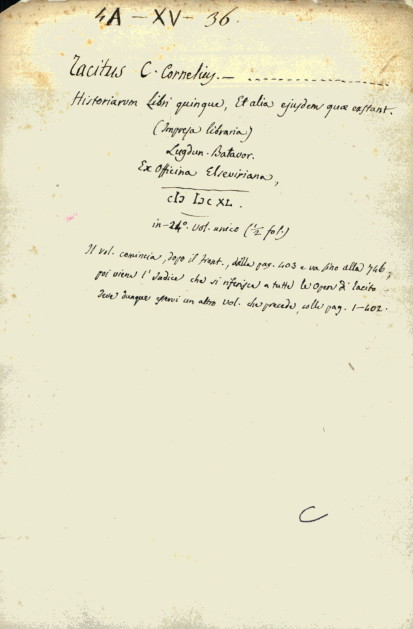 4A - XV - 36.
Tacitus C. Cornelius. —
Historiarum Libri quinque, Et alia ejusdem quæ exstant.
(Impresa libraria)
Lugdun. Batavor.
Ex Officina Elseviriana,
cIↃ IↃc XL.
in-24°. vol. unico (½ fol.)
Il vol. comincia, dopo il front., dalla pag. 403 e va fino alla 746,
poi viene l'Indice che si riferisce a tutte le Opere di Tacito
deve dunque esservi un altro vol. che precede, colle pag. 1-402.
C